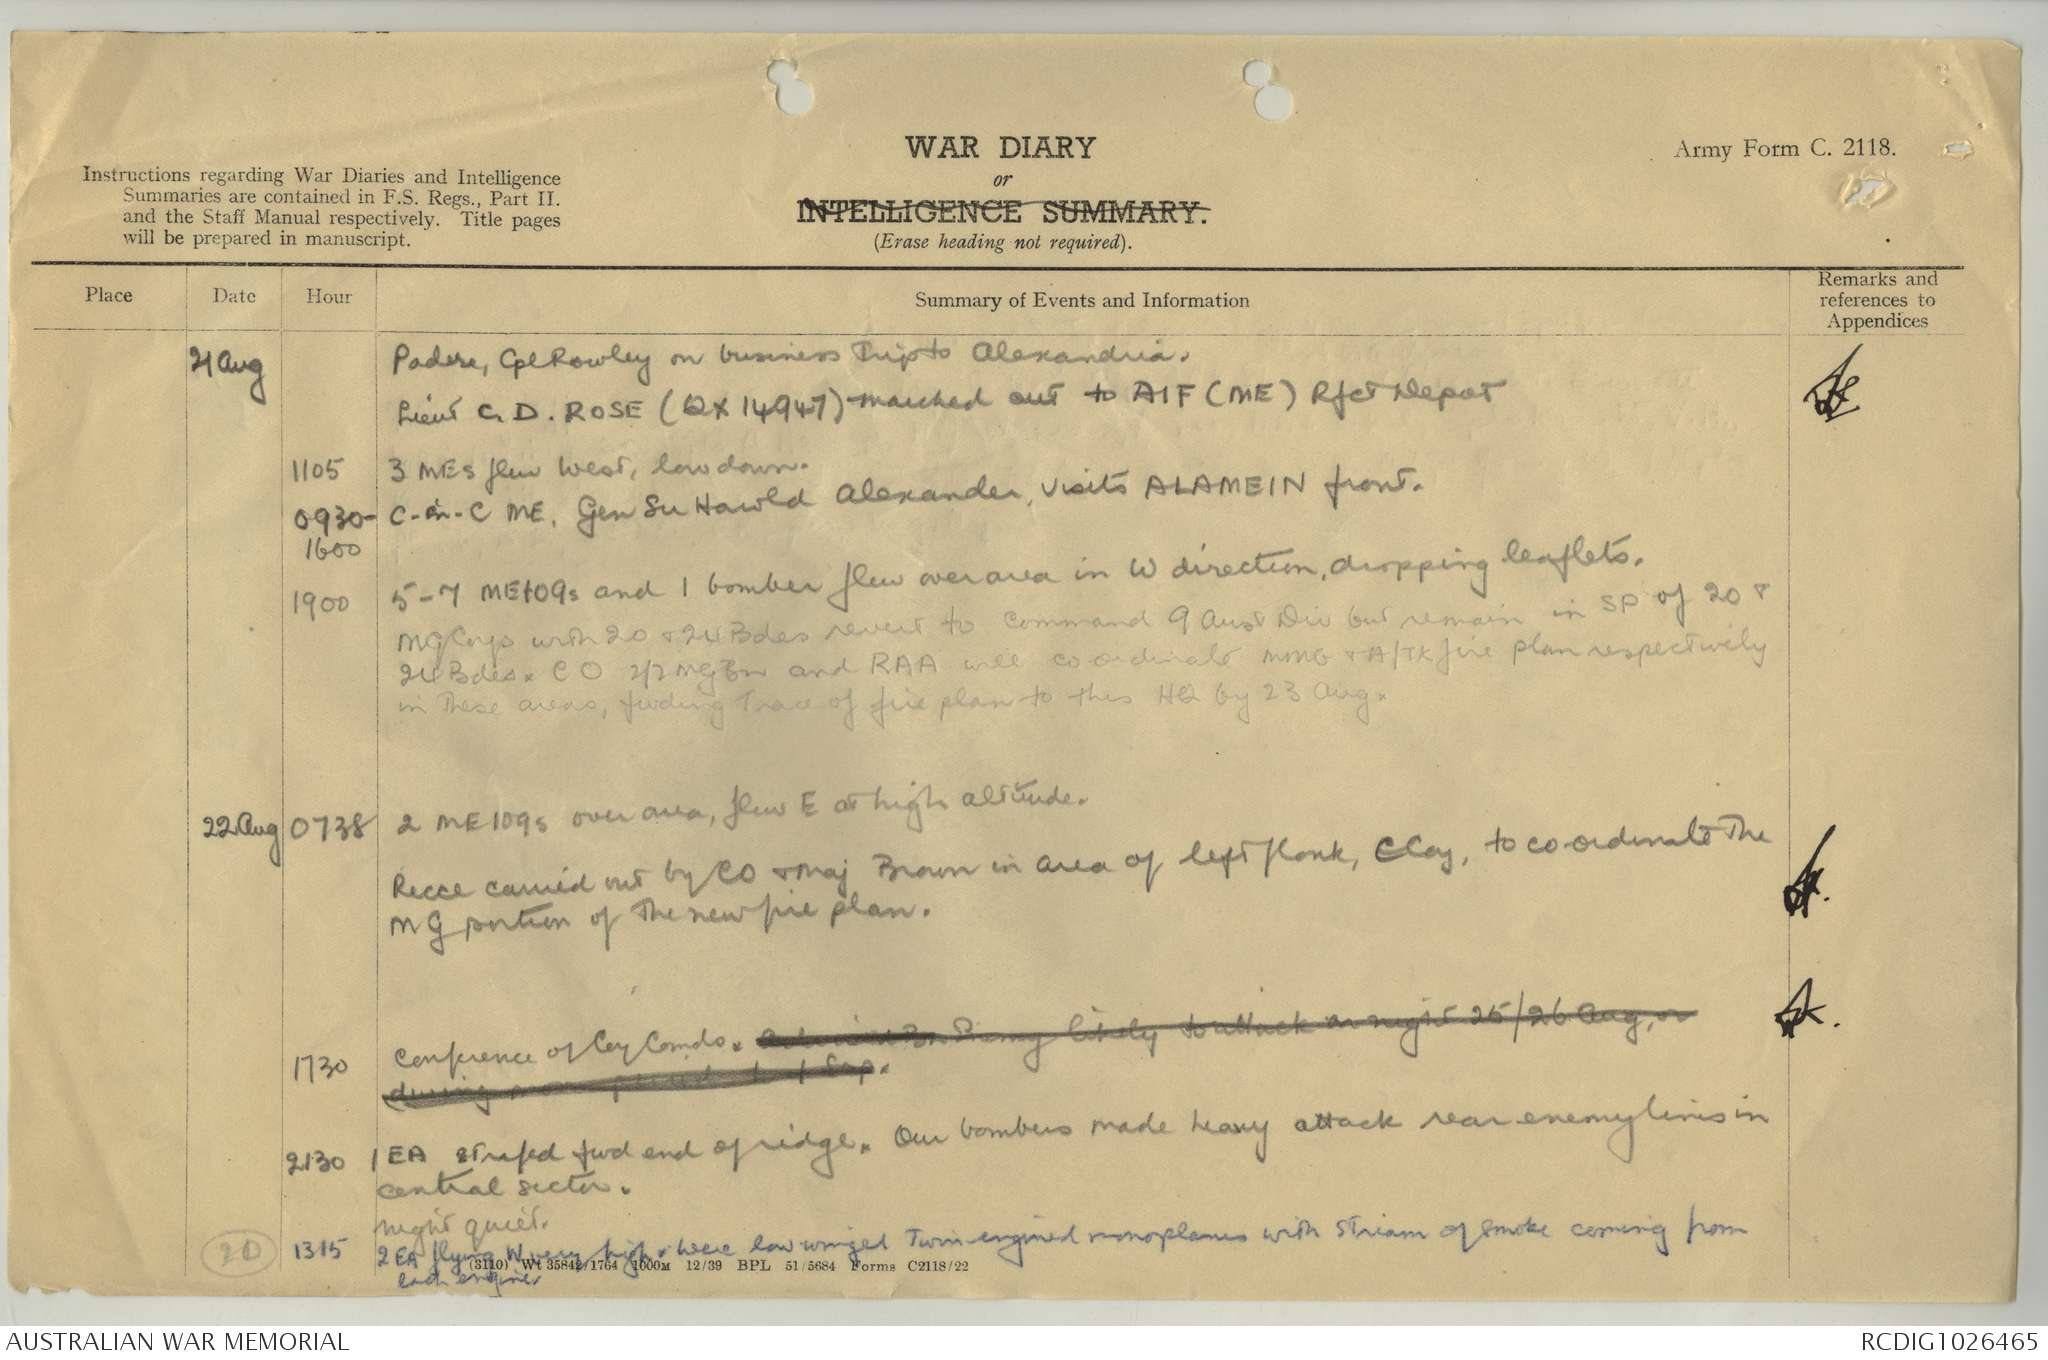 WAR DIARY
or
INTELLIGENCE SUMMARY.
(Erase heading not required).
Army Form C. 2118.
Instructions regarding War Diaries and Intelligence
Summaries are contained in F.S. Regs., Part II.
and the Staff Manual respectively. Title pages
will be prepared in manuscript.
Place Date Hour Summary of Events and Information Remarks and
references to
Appendices
21 Aug Padre, Cpl Rowley on business trip to Alexandria.
Lieut C. D. ROSE (QX 14947) marched out to AIF (ME) Rfct Depot
1105 3 MEs flew West, low down.
0930- C-in-C ME, Gen Sir Harold Alexander, visits ALAMEIN front.
1600
1900 5-7 ME109s and 1 bomber flew over area in W direction, dropping leaflets.
MG Coys with 20 & 24 Bdes revert to command 9 Aust Div but remain in SP of 20 &
24 Bdes. CO 2/2 MG Bn and RAA will co-ordinate MMG & A/TK fire plan respectively
in these areas, fwding trace of fire plan to this HQ by 23 Aug.
22 Aug 0738 2 ME109s over area, flew E at high altitude.
Recce carried out by CO & Maj Brown in area of left flank, C Coy, to co-ordinate the
MG portion of the new fire plan.
1730 Conference of Coy Comds. Enemy likely to attack on night 25/26 Aug, or
during
2130 1 EA strafed fwd end of ridge. Our bombers made heavy attack rear enemy lines in
central sector.
Night quiet.
1315 2 EA flying W very high. Were low winged twin-engined monoplanes with stream of smoke coming from
each engine.
20
(3110) Wt 35842/1764 1000M 12/39 BPL 51/5684 Forms C2118/22
AUSTRALIAN WAR MEMORIAL
RCDIG1026465